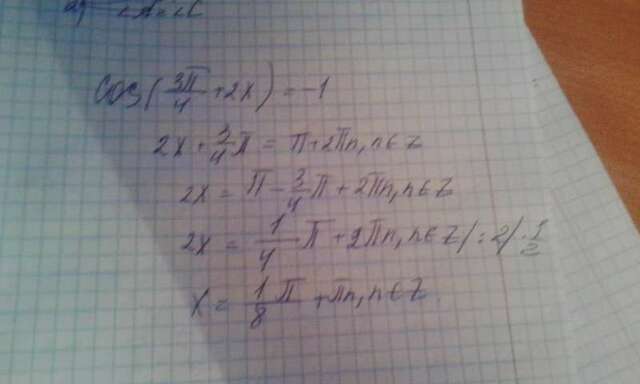 cos(3π/4 + 2x) = -1
2x + 3/4 π = π + 2πn, n ∈ Z
2x = π - 3/4 π + 2πn, n ∈ Z
2x = 1/4 π + 2πn, n ∈ Z / : 2 / · 1/2
x = 1/8 π + πn, n ∈ Z.